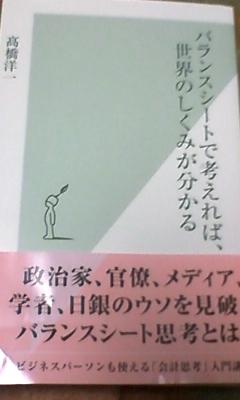 バランスシートで考えれば、
世界のしくみが分かる
髙橋洋一
政治家、官僚、メディア、
学者、日銀のウソを見破
バランスシート思考とは
ビジネスパーソンも使える「会計思考」入門